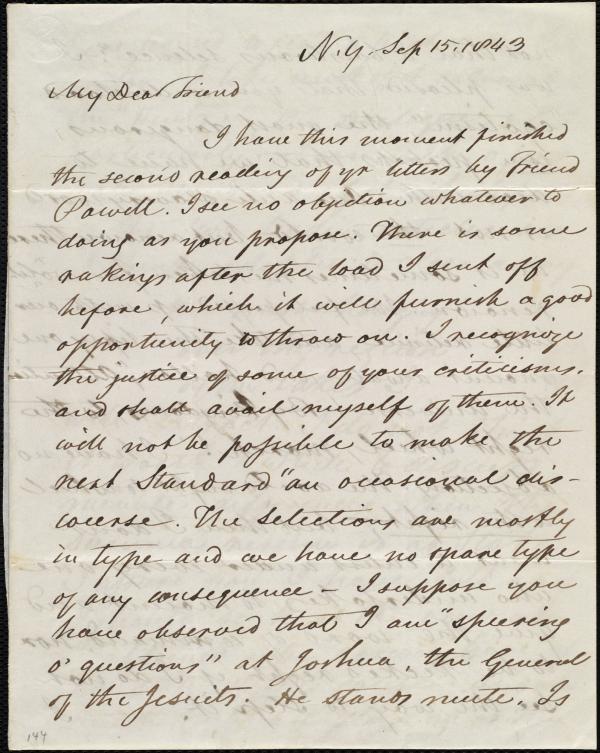 N.Y. Sep 15. 1843
My Dear Friend
I have this moment finished
the second reading of yr letters by Friend
Powell. I see no objection whatever to
doing as you propose. There is some
rakings after the load I sent off
before, which it will furnish a good
opportunity to throw on. I recognize
the justice of some of your criticisms,
and shall avail myself of them. It
will not be possible to make the
next Standard "an occasional dis-
course. The selections are mostly
in type and we have no spare type
of any consequence – I suppose you
have observed that I am "speering
o' questions" at Joshua, the General
of the Jesuits. He stands mute. Is
144